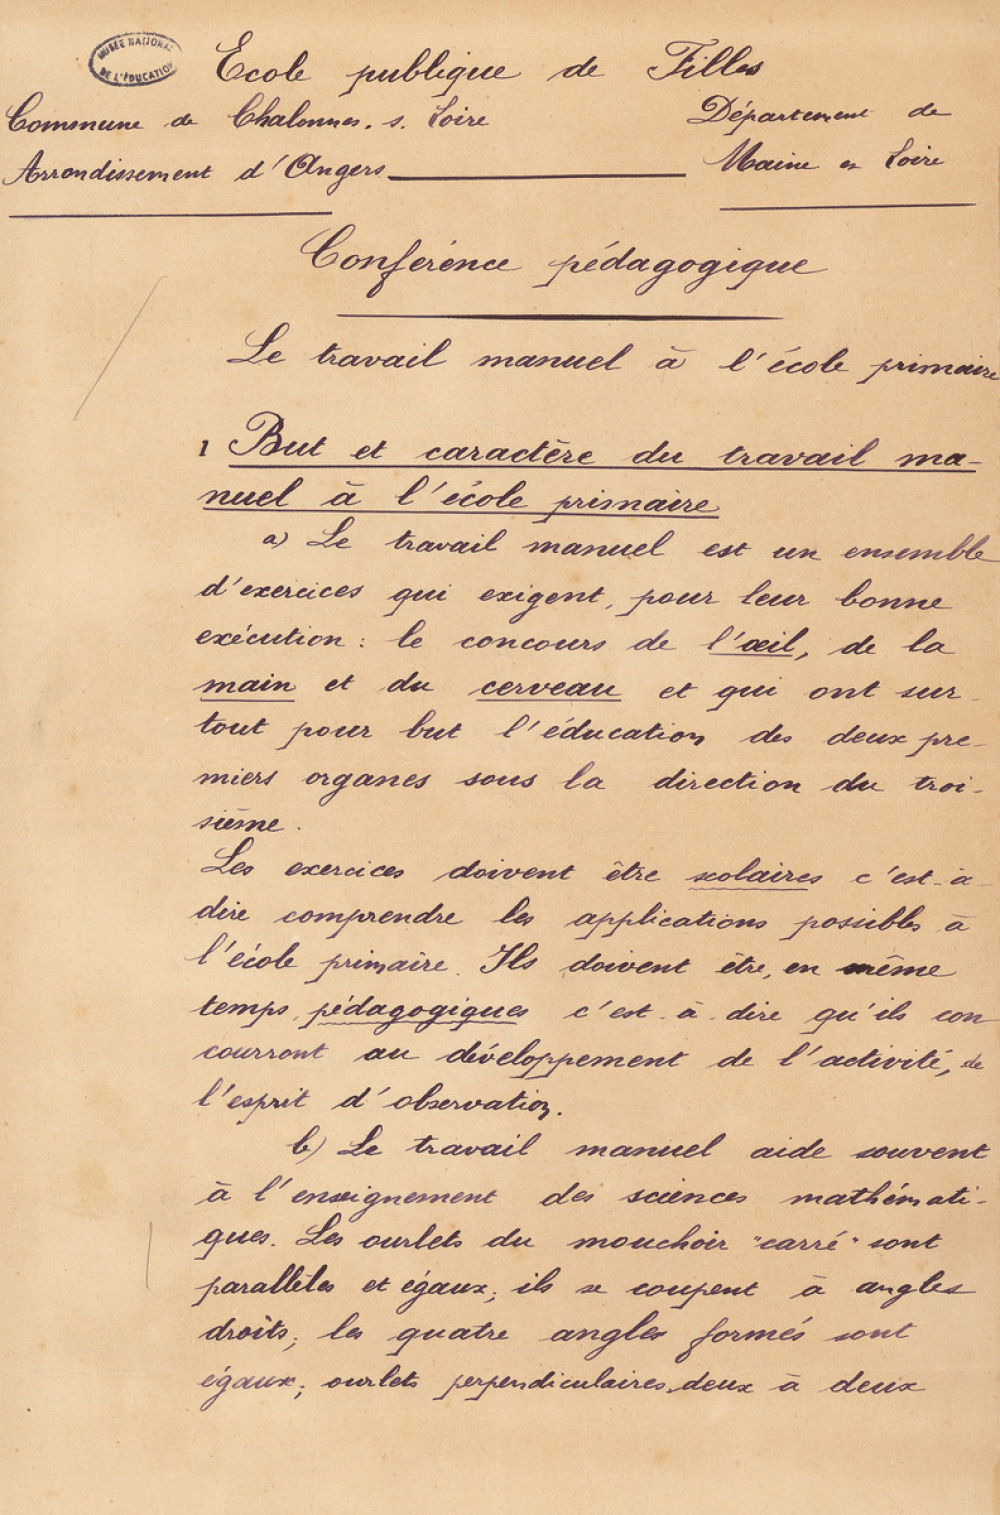 MUSÉE NATIONAL
DE L'ÉDUCATION
École publique de Filles
Commune de Chalonnes. s. Loire
Département de
Arrondissement d'Angers
Maine et Loire
Conférence pédagogique
Le travail manuel à l'école primaire
1 But et caractère du travail ma-
nuel à l'école primaire
a) Le travail manuel est un ensemble
d'exercices qui exigent, pour leur bonne
exécution : le concours de l'œil, de la
main et du cerveau et qui ont sur-
tout pour but l'éducation des deux pre-
miers organes sous la direction du troi-
sième.
Les exercices doivent être scolaires c'est-à-
dire comprendre les applications possibles à
l'école primaire. Ils doivent être, en même
temps, pédagogiques c'est-à-dire qu'ils con
courront au développement de l'activité, de
l'esprit d'observation.
b) Le travail manuel aide souvent
à l'enseignement des sciences mathémati-
ques. Les ourlets du mouchoir "carré" sont
parallèles et égaux; ils se coupent à angles
droits; les quatre angles formés sont
égaux; ourlets perpendiculaires deux à deux